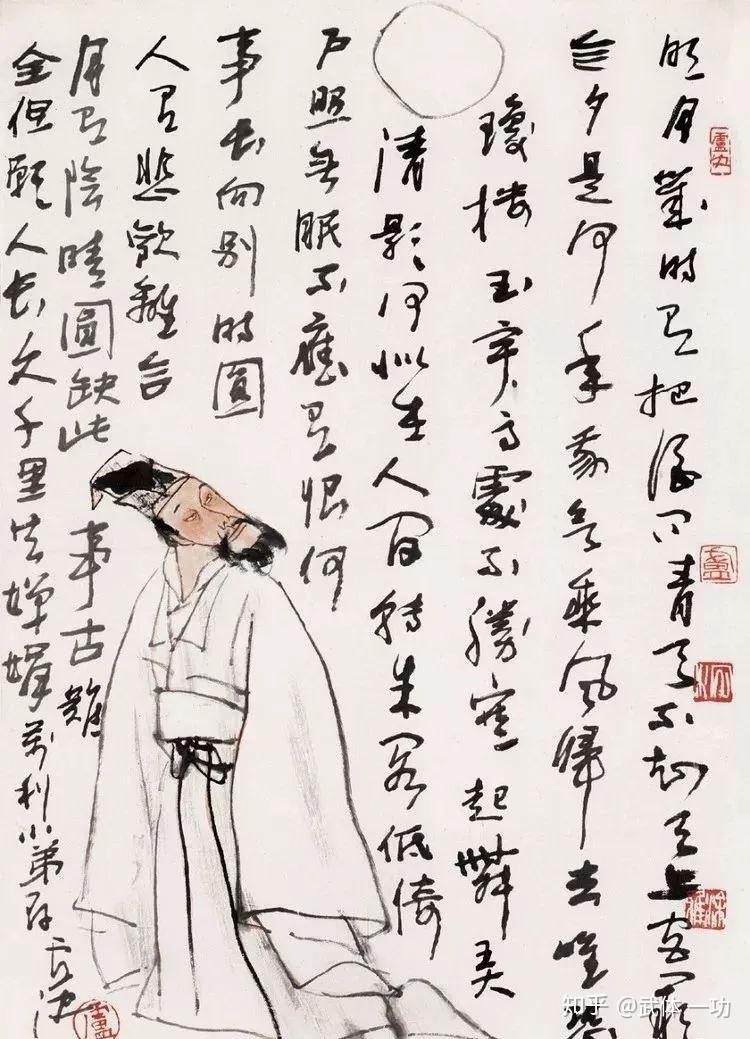 明月幾時有把酒問青天不知天上宫闕
今夕是何年我欲乘風歸去唯恐
瓊樓玉宇高處不勝寒起舞弄
清影何似在人間轉朱閣低倚
户照無眠不應有恨何
事長向別時圓
人有悲歡離合
月有陰晴圓缺此事古難
全但願人長久千里共嬋娟萬利小弟存
盧
知乎 @武体一功